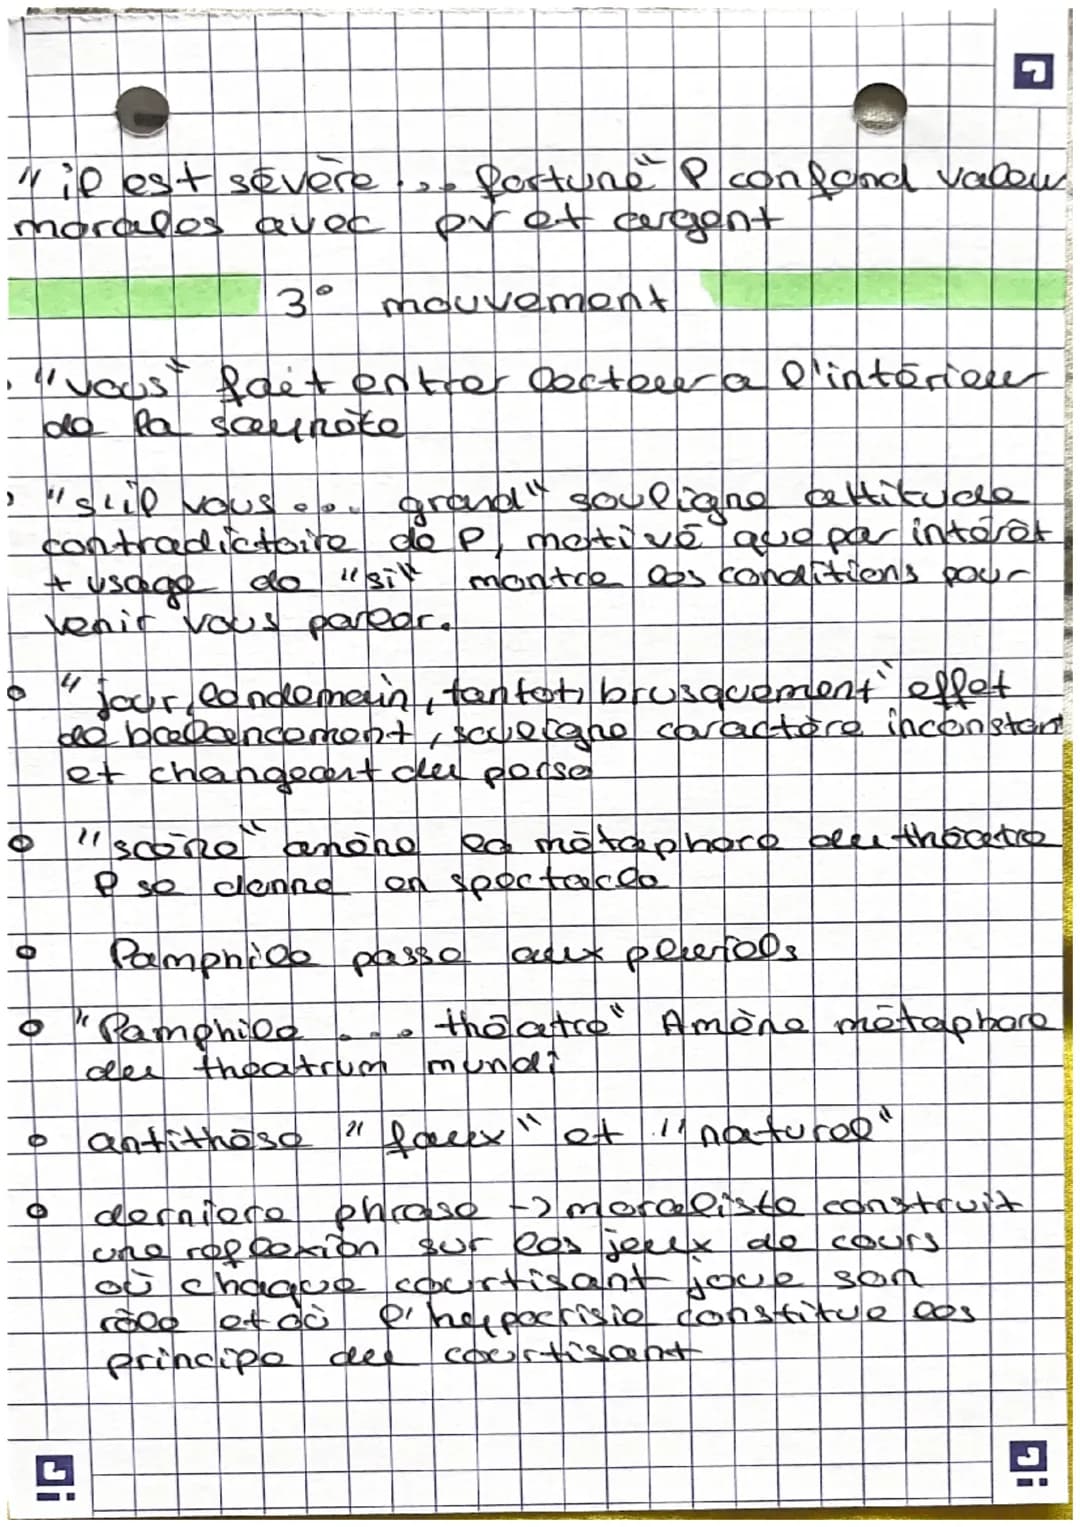 "il est sévère ... fortuné" P confond valeur
morales avec pv et argent
3° mouvement
"vous" fait entrer lecteur a l'intérieur
de la scaynète
"s'il vous ... grand" souligne attitude
contradictoire de P, motivé que par intérêt
+ usage do "si" montre les conditions pour
venir vous parler.
"jour, lendemain, tantot, brusquement" effet
de balancement, souligne caractère inconstant
et changeant du perso
"scène" amène la métaphore du théatre
P se donne en spectacle
Pamphile passe aux pluriels
"Pamphile ... théatre" Amène métaphore
du theatrum mundi
antithèse "faux" et "naturel"
derniere phrase -> moraliste construit
une reflexion sur les jeux de cours
où chaque courtisant joue son
rôle et où l'hypocrisie constitue les
principe du courtisant